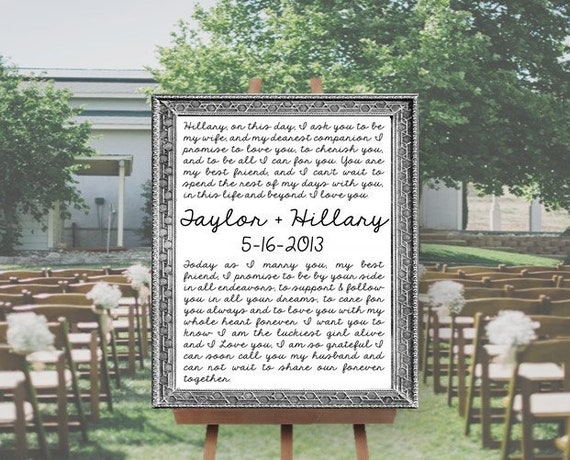 Hillary, on this day, I ask you to be
my wife, and my dearest companion. I
promise to love you, to cherish you,
and to be all I can for you. You are
my best friend, and I can't wait to
spend the rest of my days with you,
in this life and beyond. I love you.
Taylor + Hillary
5-16-2013
Today as I marry you, my best
friend, I promise to be by your side
in all endeavors, to support & follow
you in all your dreams, to care for
you always and to love you with my
whole heart forever. I want you to
know I am the luckiest girl alive
and I Love you, I am so grateful I
can soon call you my husband and
can not wait to share our forever
together.